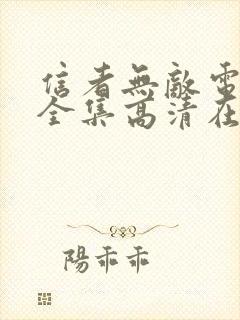 信者無敵電
全集高清在
陽乖乖